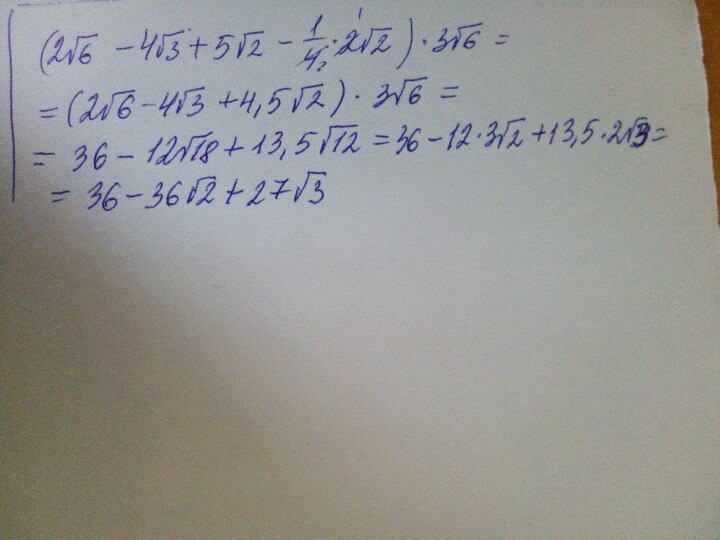 (2√6 - 4√3 + 5√2 - 1/4₂ · 2¹√2) · 3√6 =
= (2√6 - 4√3 + 4,5√2) · 3√6 =
= 36 - 12√18 + 13,5√12 = 36 - 12·3√2 + 13,5·2√3 =
= 36 - 36√2 + 27√3